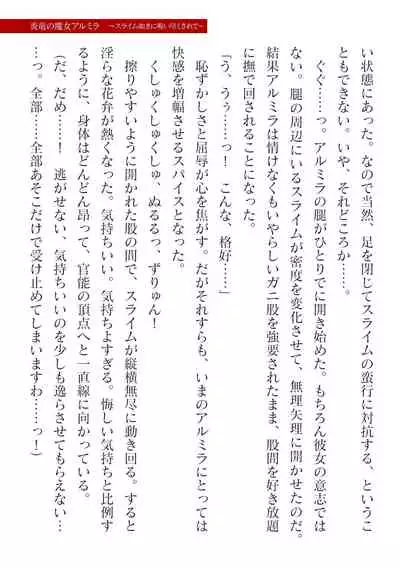 炎竜の魔女アルミラ　～スライム如きに吸い尽くされて～
い状態にあった。なので当然、足を閉じてスライムの蛮行に対抗する、というこ
ともできない。いや、それどころか……。
ぐぐ……っ。アルミラの腿がひとりでに開き始めた。もちろん彼女の意志では
ない。腿の周辺にいるスライムが密度を変化させて、無理矢理に開かせたのだ。
結果アルミラは情けなくもいやらしいガニ股を強要されたまま、股間を好き放題
に撫で回されることになった。
「う、うぅ……っ！　こんな、格好……」
恥ずかしさと屈辱が心を焦がす。だがそれすらも、いまのアルミラにとっては
快感を増幅させるスパイスとなった。
くしゅくしゅくしゅ、ぬるるっ、ずりゅん！
擦りやすいように開かれた股の間で、スライムが縦横無尽に動き回る。すると
淫らな花弁が熱くなった。気持ちいい。気持ちよすぎる。悔しい気持ちと比例す
るように、身体はどんどん昂って、官能の頂点へと一直線に向かっている。
（だ、だめ……！　逃がせない、気持ちいいのを少しも逸らさせてもらえない…
…っ。全部……全部あそこだけで受け止めてしまいますわ……っ！）